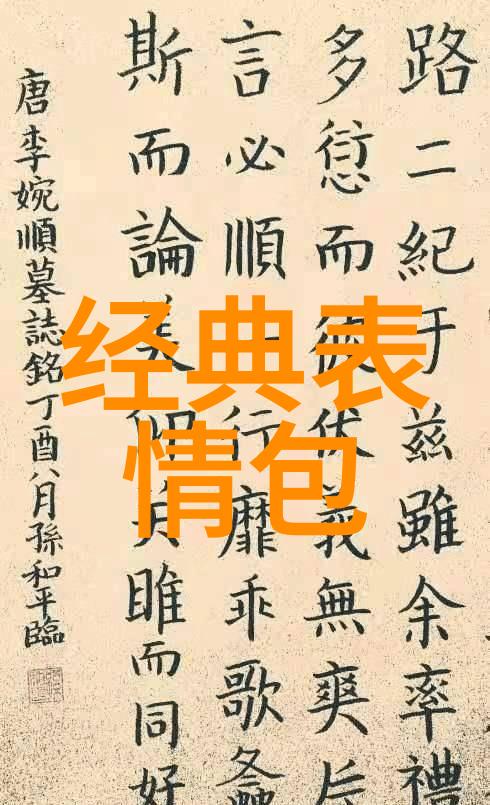 路二紀于兹雖余率禮
多愆而伏義無爽
言必順行靡乖歌
斯而論美雎而同好
唐李婉順墓誌銘丁酉八月孫和平臨
经典表
情包